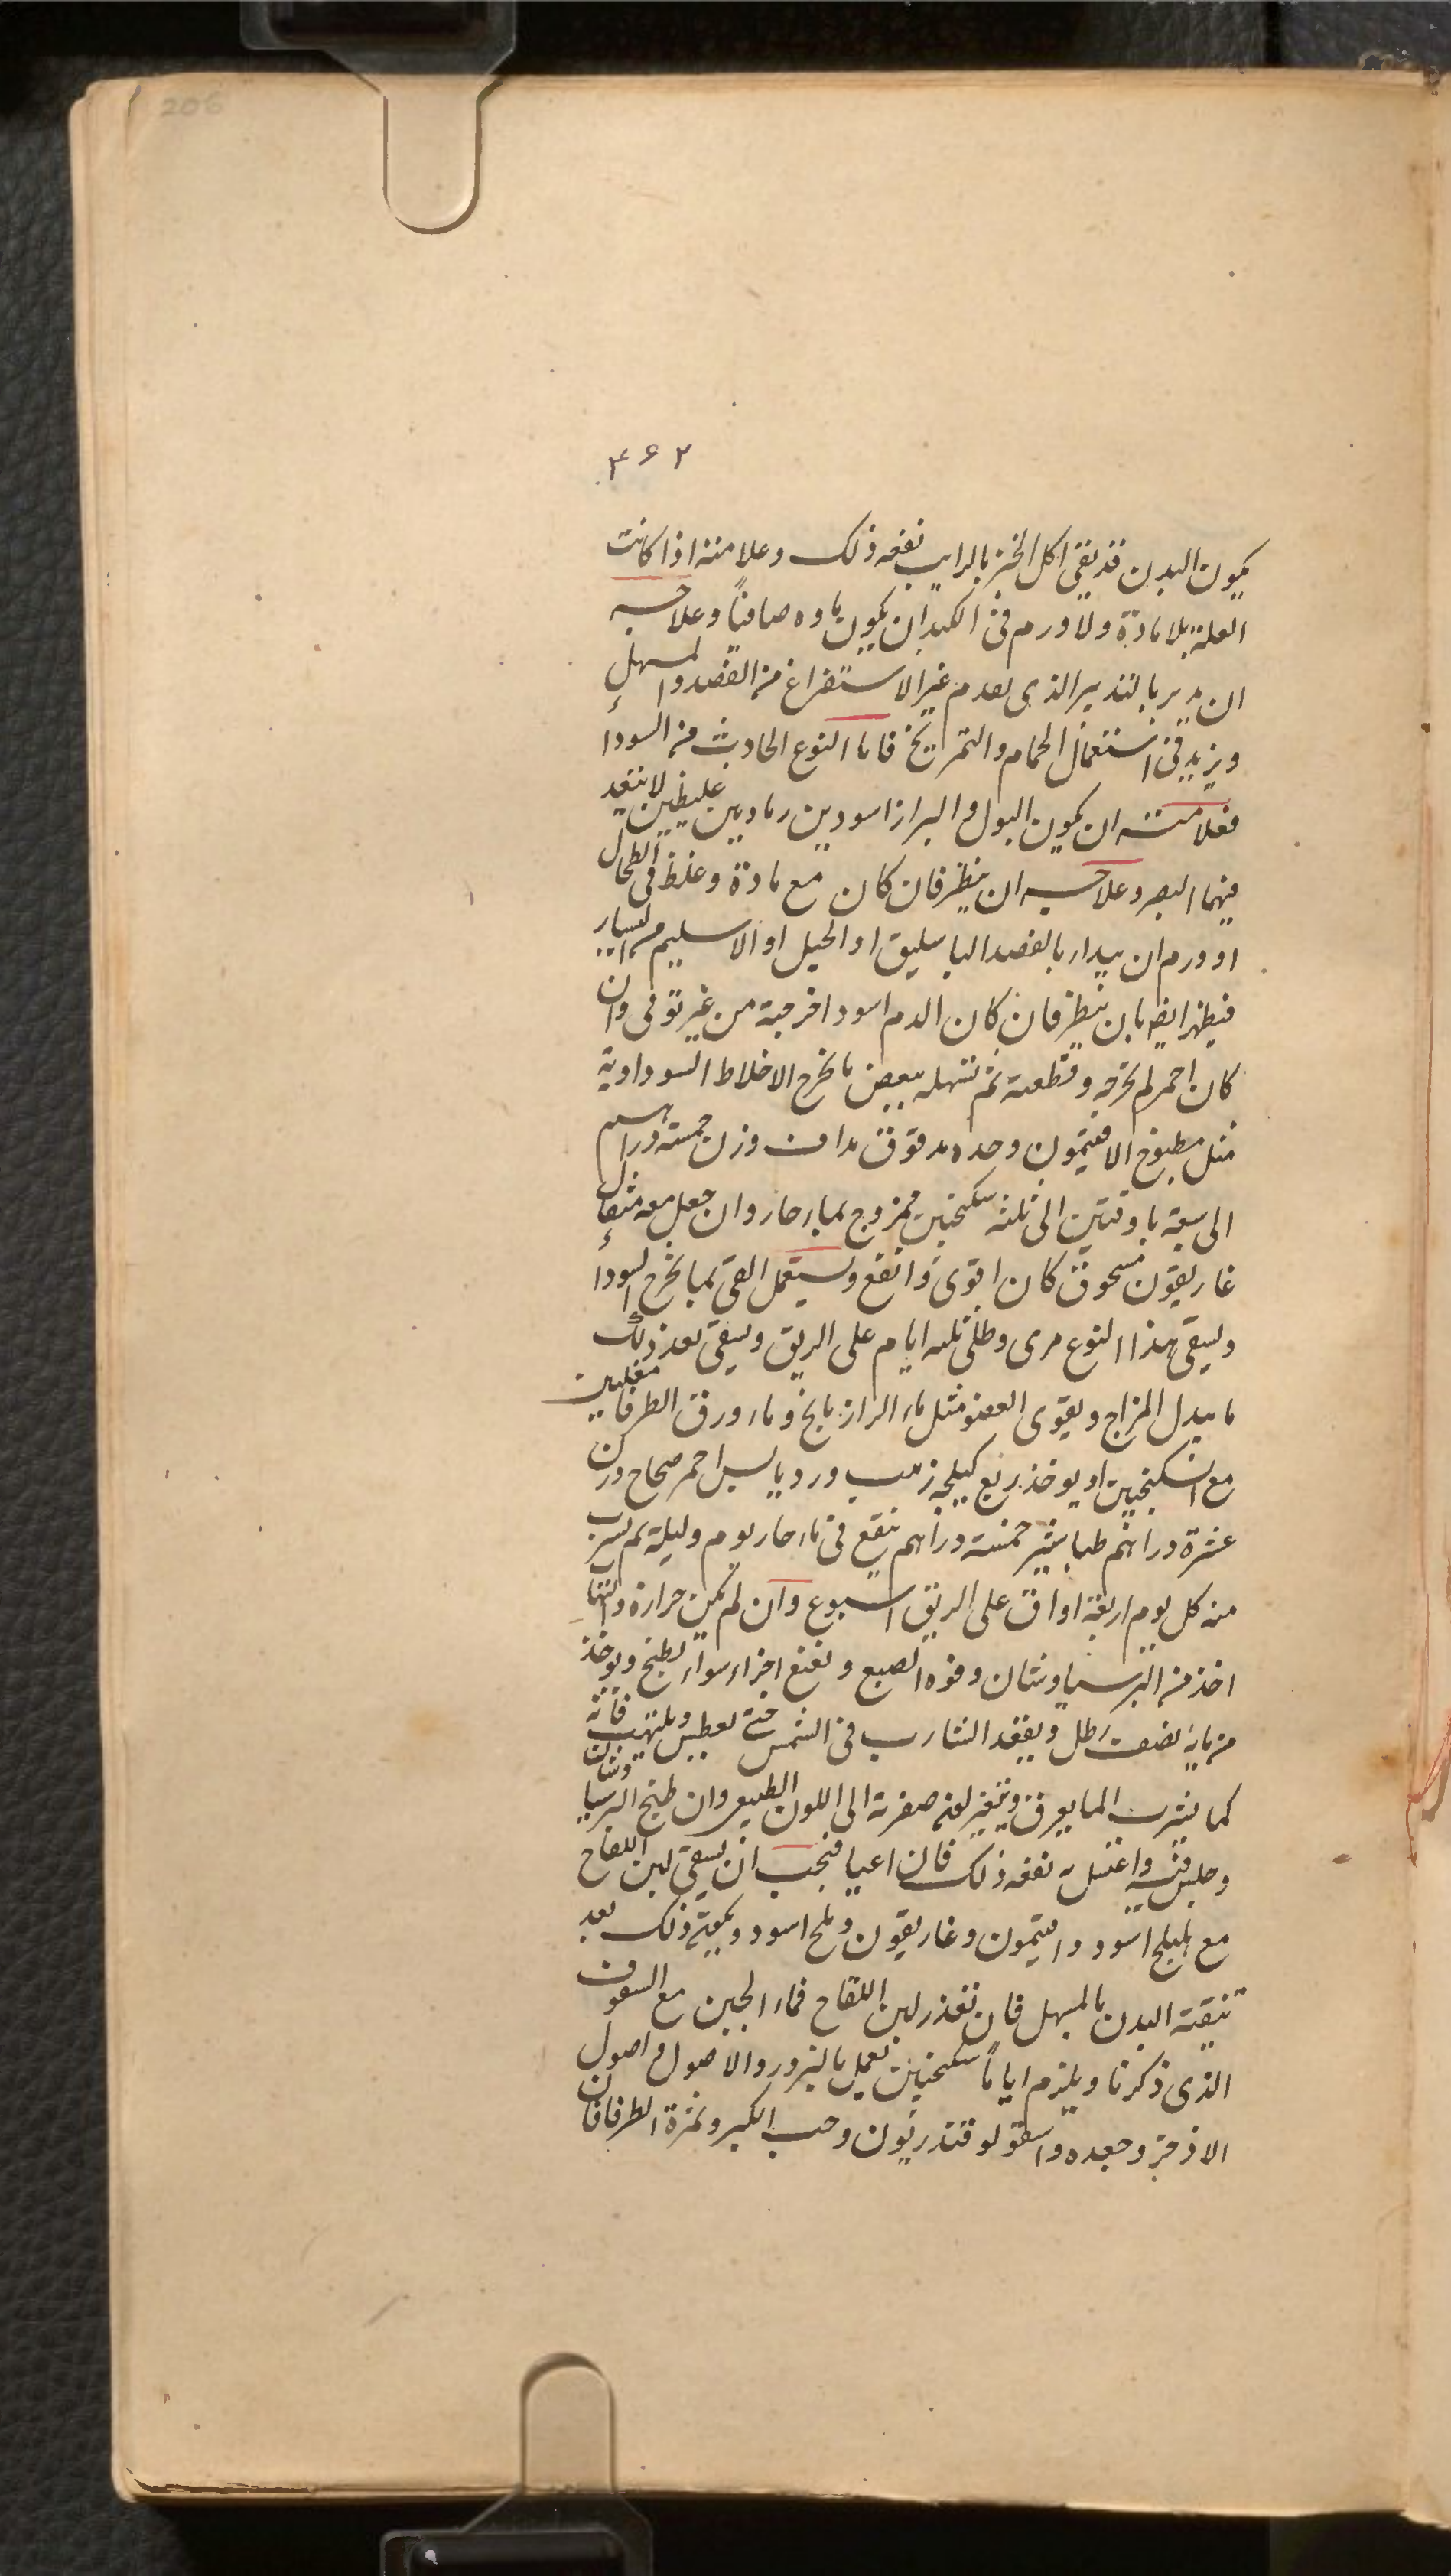 206
۴۶۲
يكون البدن قد نقى اكل الخبز بالرايب نفعه ذلك وعلامته اذا كانت
العلة بلا مادة ولا ورم فى الكبد ان يكون ماوه صافياً وعلاجه
ان يدبر بالتدبير الذى تقدم غير الاستفراغ من الفصد والمسهل
ويزيد فى استعمال الحمام والتمريخ فاما النوع الحادث من السوداء
فعلامته ان يكون البول والبراز اسودين رماديين غليظين لا ينفد
فيهما البصر وعلاجه ان ينظر فان كان مع مادة وغلظ فى الطحال
او ورم ان يبدأ بالفصد الباسليق او الحبل او الاسليم من اليسار
فينظر ايضا بان ينظر فان كان الدم اسود اخرجته من غير توقى وان
كان احمر لم تخرجه وقطعته ثم تسهله ببعض ما يخرج الاخلاط السوداوية
مثل مطبوخ الافتيمون وحده مدقوق مداف وزن خمسة دراهم
الى سبعة باوقيتين الى ثلثه سكنجبين ممزوج بماء حار وان جعل معه مثقال
غاريقون مسحوق كان اقوى وانفع ويستعمل القى بما يخرج السوداء
ويسقى هذا النوع مرى وطلى ثلثه ايام على الريق ويسقى بعد ذلك
ما يبدل المزاج ويقوى العضو مثل ماء الرازيانج وماء ورق الطرفا مغليين
مع السكنجبين او يوخذ ربع كيلجه زبيب ورد يابس احمر صحاح وزن
عشرة دراهم طباشير خمسة دراهم ينقع فى ماء حار يوم وليلة ثم يشرب
منه كل يوم اربعة اواق على الريق اسبوع وان لم تكن حرارة والتهاب
اخذ من البرسياوشان وفوه الصبغ ونعنع اجزاء سواء يطبخ ويوخذ
من مايه نصف رطل ويقعد الشارب فى الشمس حتى يعطش ويلتهب فانه
كما يشرب الما يعرق ويتغير لونه صفرته الى اللون الطبيعى وان طبخ البرسياوشان
وجلس فيه واغتسل به نفعه ذلك فان اعيا فيجب ان يسقى لبن اللقاح
مع هليلج اسود وافتيمون وغاريقون وملح اسود ويكون ذلك بعد
تنقية البدن بالمسهل فان تعذر لبن اللقاح فماء الجبن مع السفوف
الذى ذكرنا ويلزم اياماً سكنجبين يعمل بالبزور والاصول واصول
الاذخر وجعده واسقولوقندريون وحب الكبر وثمرة الطرفا فان